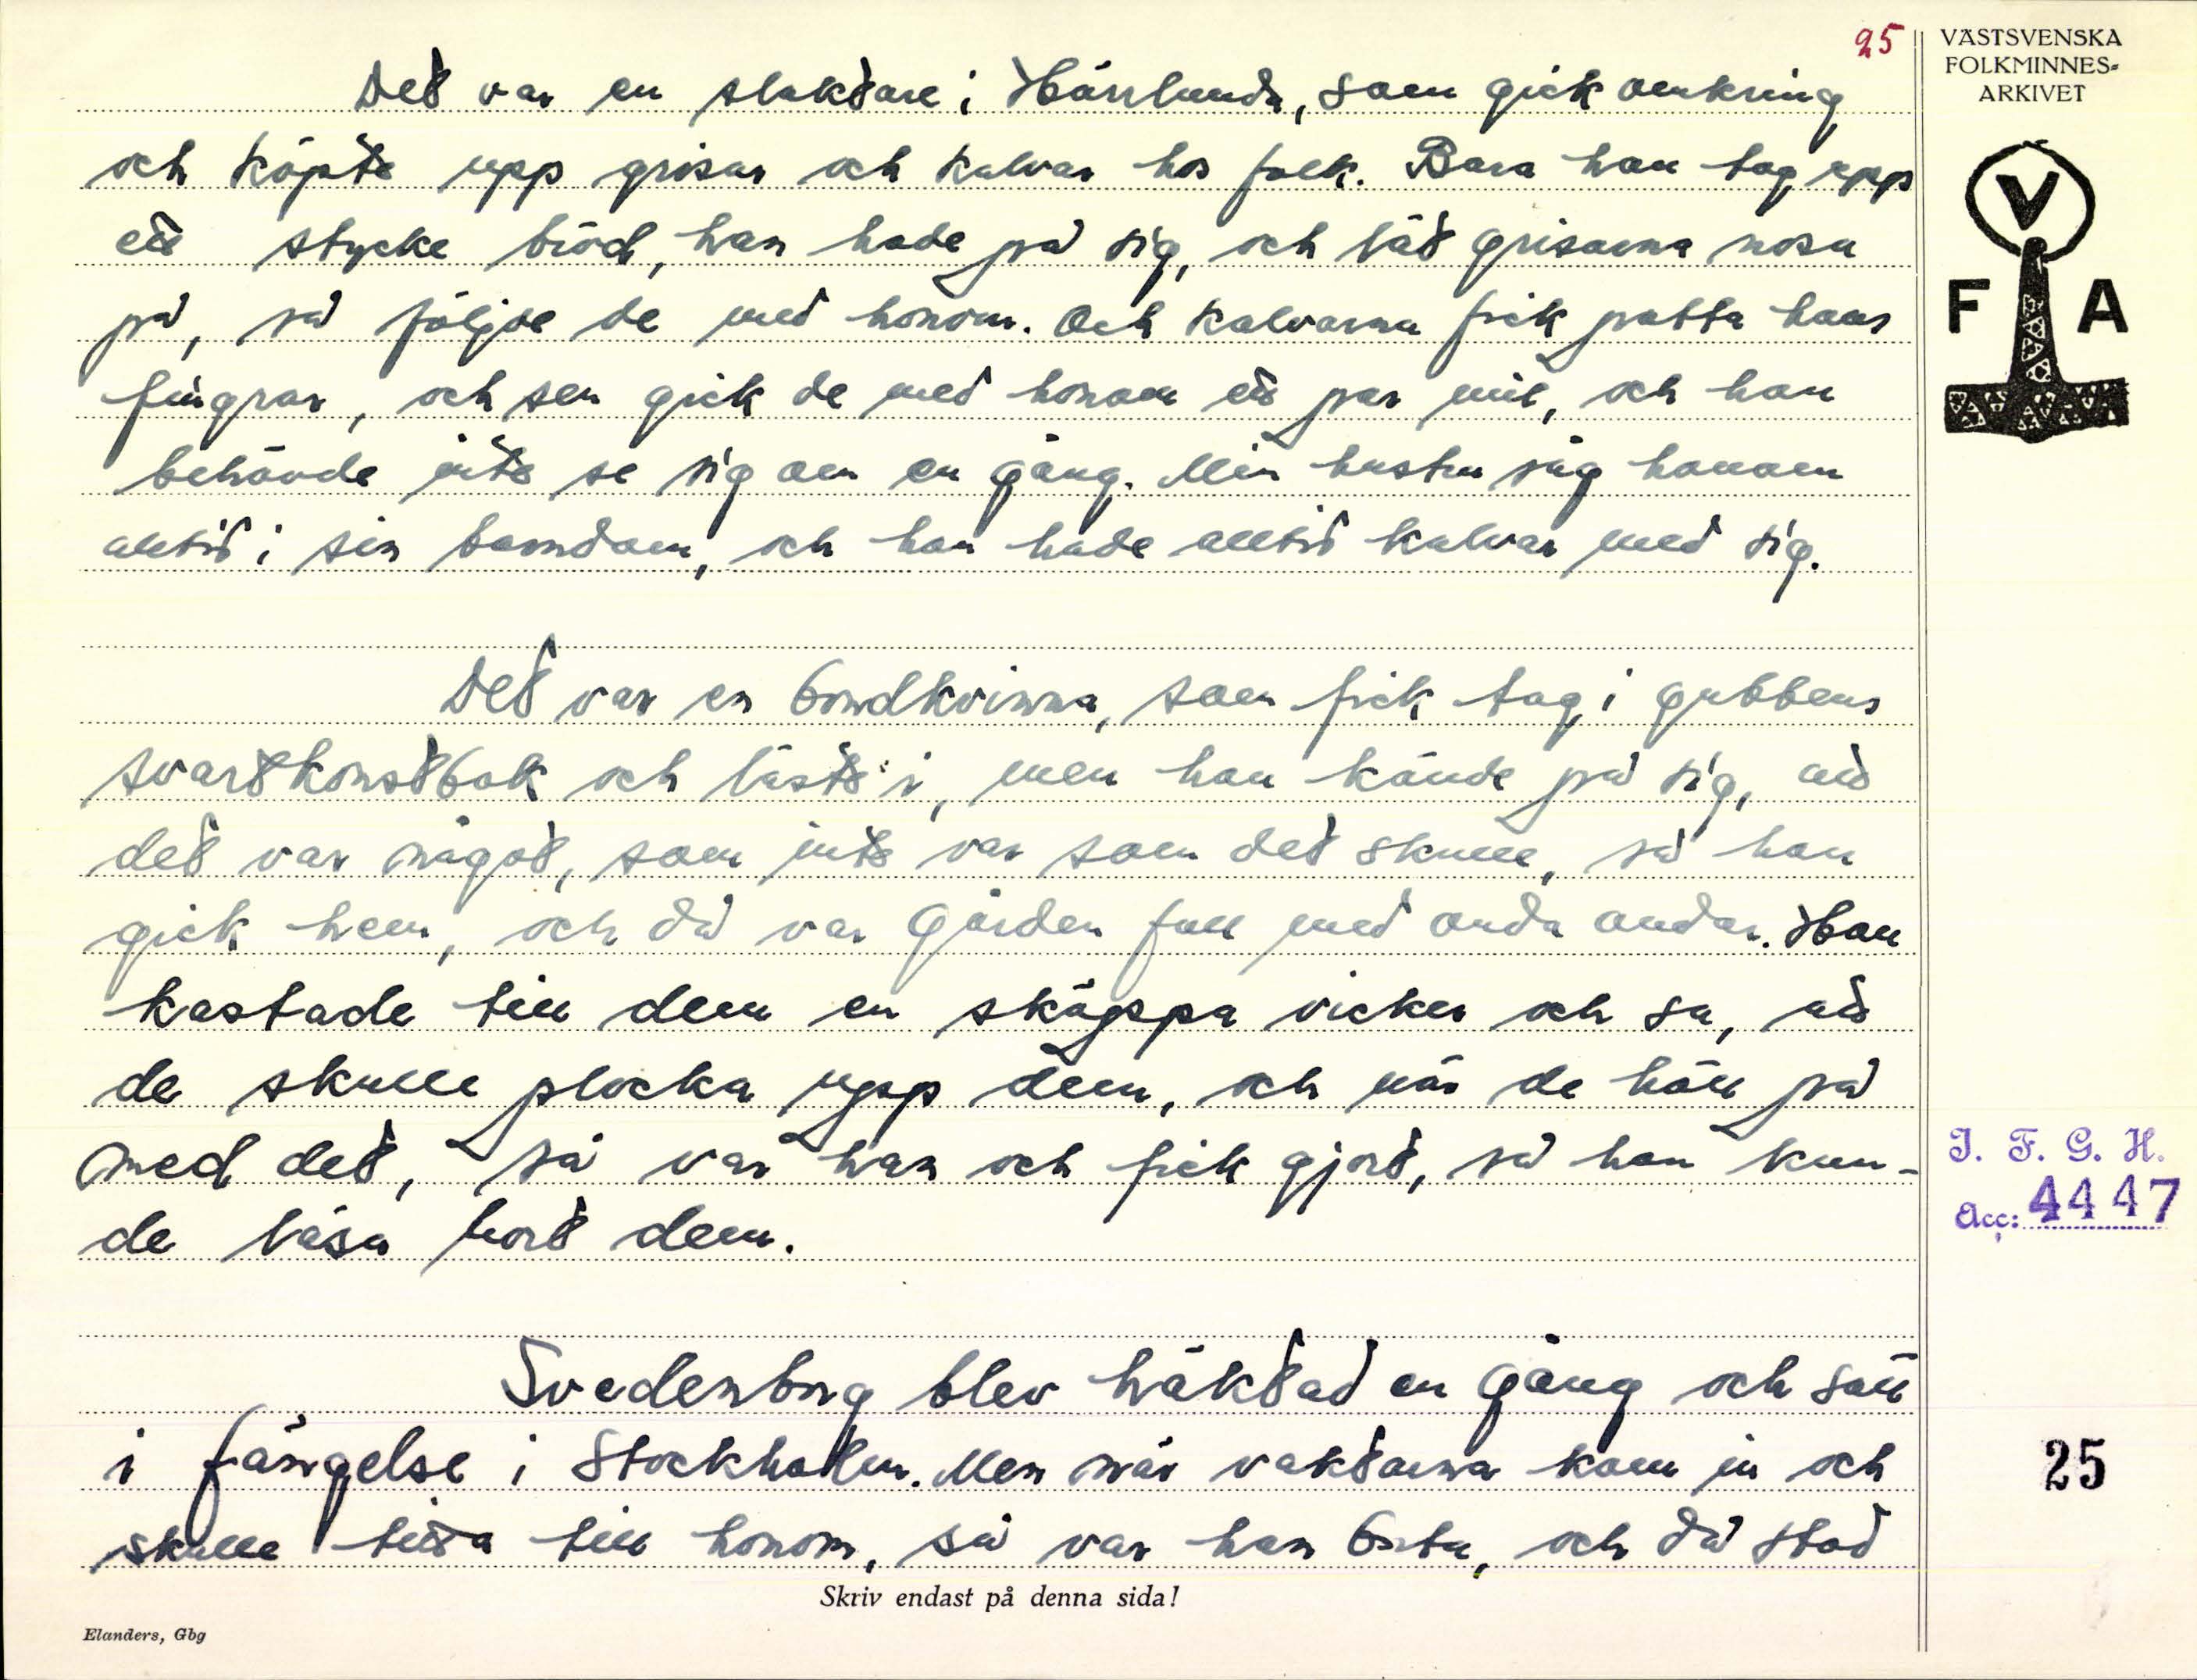 25
VÄSTSVENSKA
FOLKMINNES-
ARKIVET
Det var en slaktare i Härrlunda, som gick omkring
och köpte upp grisar och kalvar hos folk. Bara han tog upp
ett stycke bröd, han hade på sig, och lät grisarna nosa
på, så följde de med honom. Och kalvarna fick patta hans
fingrar, och sen gick de med honom ett par mil, och han
behövde inte se sig om en gång. Min hustru såg honom
alltid i sin barndom, och han hade alltid kalvar med sig.
Det var en bondkvinna, som fick tag i gubbens
svartkonstbok och läste i, men han kände på sig, att
det var något, som inte var som det skulle, så han
gick hem, och då var gården full med onda andar. Han
kastade till dem en skäppa vicker och sa, att
de skulle plocka upp dem, och när de höll på
med det, så var han och fick gjort, så han kun-
de läsa bort dem.
Svedenborg blev häktad en gång och satt
i fängelse i Stockholm. Men när vaktarna kom in och
skulle titta till honom, så var han borta, och då stod
V
F A
I. F. G. H.
Acc: 4447
25
Skriv endast på denna sida!
Elanders, Gbg